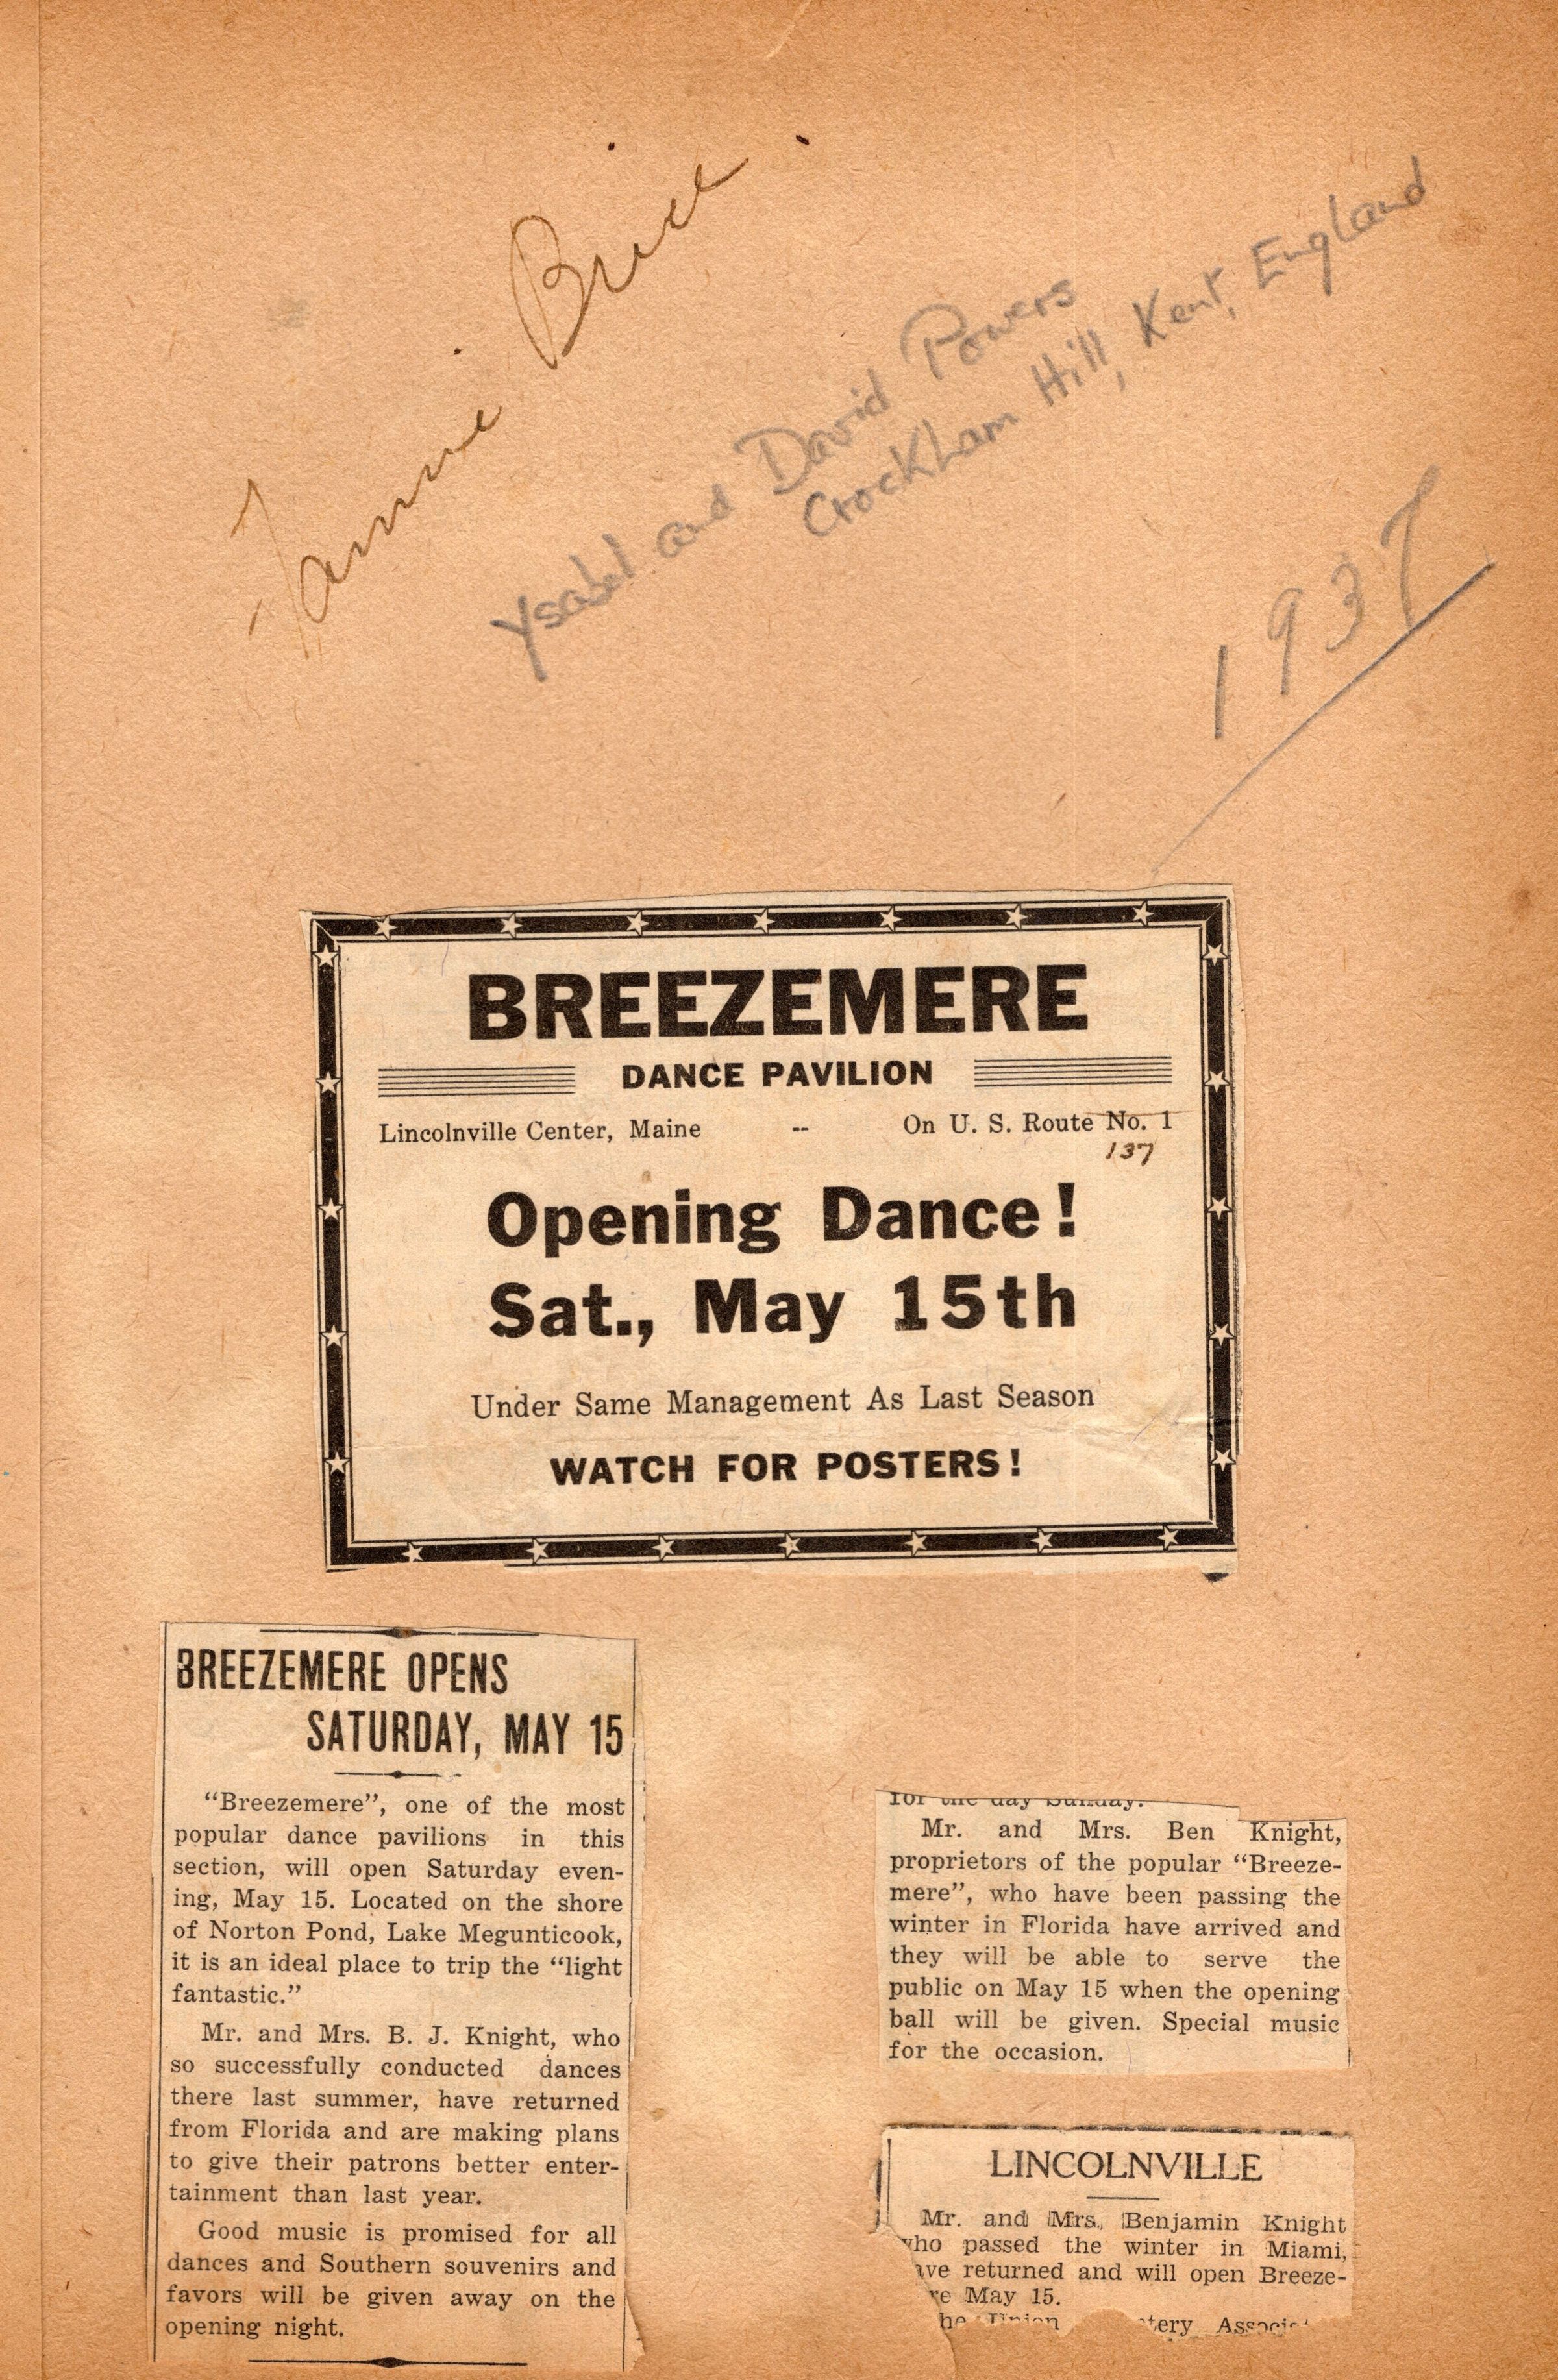 Fannie Brice
Ysabel and David Powers
Crockham Hill, Kent, England
1937
BREEZEMERE
DANCE PAVILION
Lincolnville Center, Maine -- On U. S. Route No. 1
137
Opening Dance!
Sat., May 15th
Under Same Management As Last Season
WATCH FOR POSTERS!
BREEZEMERE OPENS
SATURDAY, MAY 15
"Breezemere", one of the most
popular dance pavilions in this
section, will open Saturday even-
ing, May 15. Located on the shore
of Norton Pond, Lake Megunticook,
it is an ideal place to trip the "light
fantastic."
Mr. and Mrs. B. J. Knight, who
so successfully conducted dances
there last summer, have returned
from Florida and are making plans
to give their patrons better enter-
tainment than last year.
Good music is promised for all
dances and Southern souvenirs and
favors will be given away on the
opening night.
for the day Sunday.
Mr. and Mrs. Ben Knight,
proprietors of the popular "Breeze-
mere", who have been passing the
winter in Florida have arrived and
they will be able to serve the
public on May 15 when the opening
ball will be given. Special music
for the occasion.
LINCOLNVILLE
Mr. and Mrs. Benjamin Knight
who passed the winter in Miami,
ave returned and will open Breeze-
re May 15.
he Union tery Associ